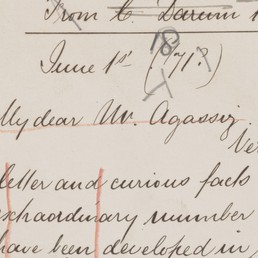 From C. Darwin
June 1st (71?)
18
My dear Mr. Agassiz.
Ve
letter and curious facts
extraordinary number
have been developed in